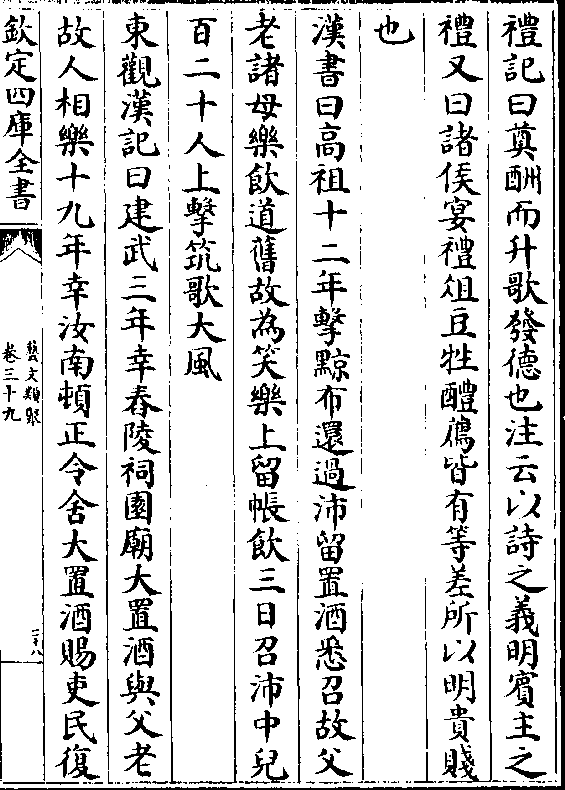 禮記曰奠酬而升歌發德也注云以詩之義明賓主之
禮又曰諸侯宴禮俎豆牲醴薦皆有等差所以明貴賤
也
漢書曰高祖十二年擊黥布還過沛留置酒悉召故父
老諸母樂飲道舊故為笑樂上留帳飲三日召沛中兒
百二十人上擊筑歌大風
東觀漢記曰建武三年幸舂陵祠園廟大置酒與父老
故人相樂十九年幸汝南頓正令舍大置酒賜吏民復
欽定四庫全書
藝文類聚
卷三十九
二十八